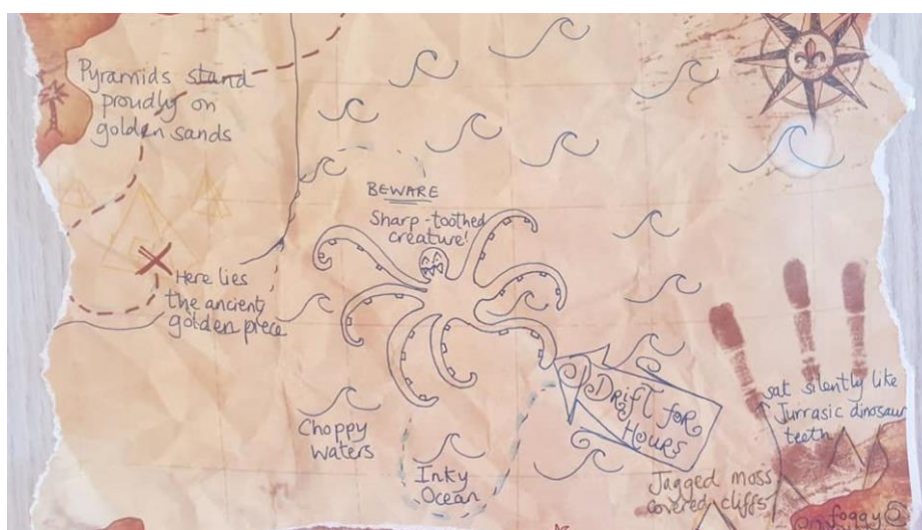 Pyramids stand
proudly on
golden sands
BEWARE
Sharp-toothed
creature!
Here lies
the ancient
golden piece
Choppy
Waters
Inky
Ocean
Drift for
Hours
sat silently like
Jurrasic dinosaur
teeth
Jagged moss
covered cliffs
foggy